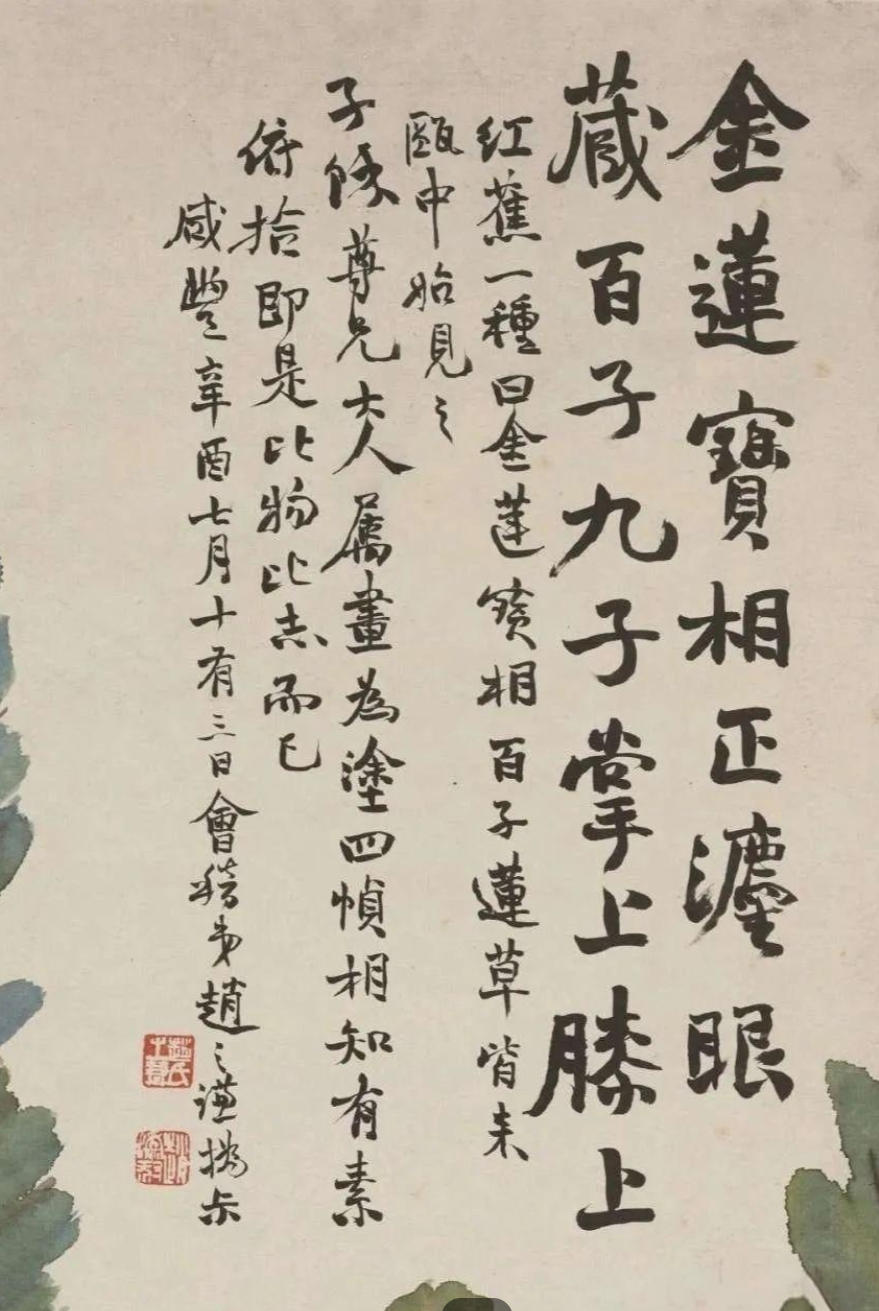 金蓮寶相正法眼
藏百子九子掌上膝上
紅蕉一種曰金蓮寶相百子蓮草皆來
甌中始見之
子條尊兄大人屬畫為塗四幀相知有素
俯拾即是比物比志而已
咸豐辛酉七月十有三日會稽弟趙之謙撝尗